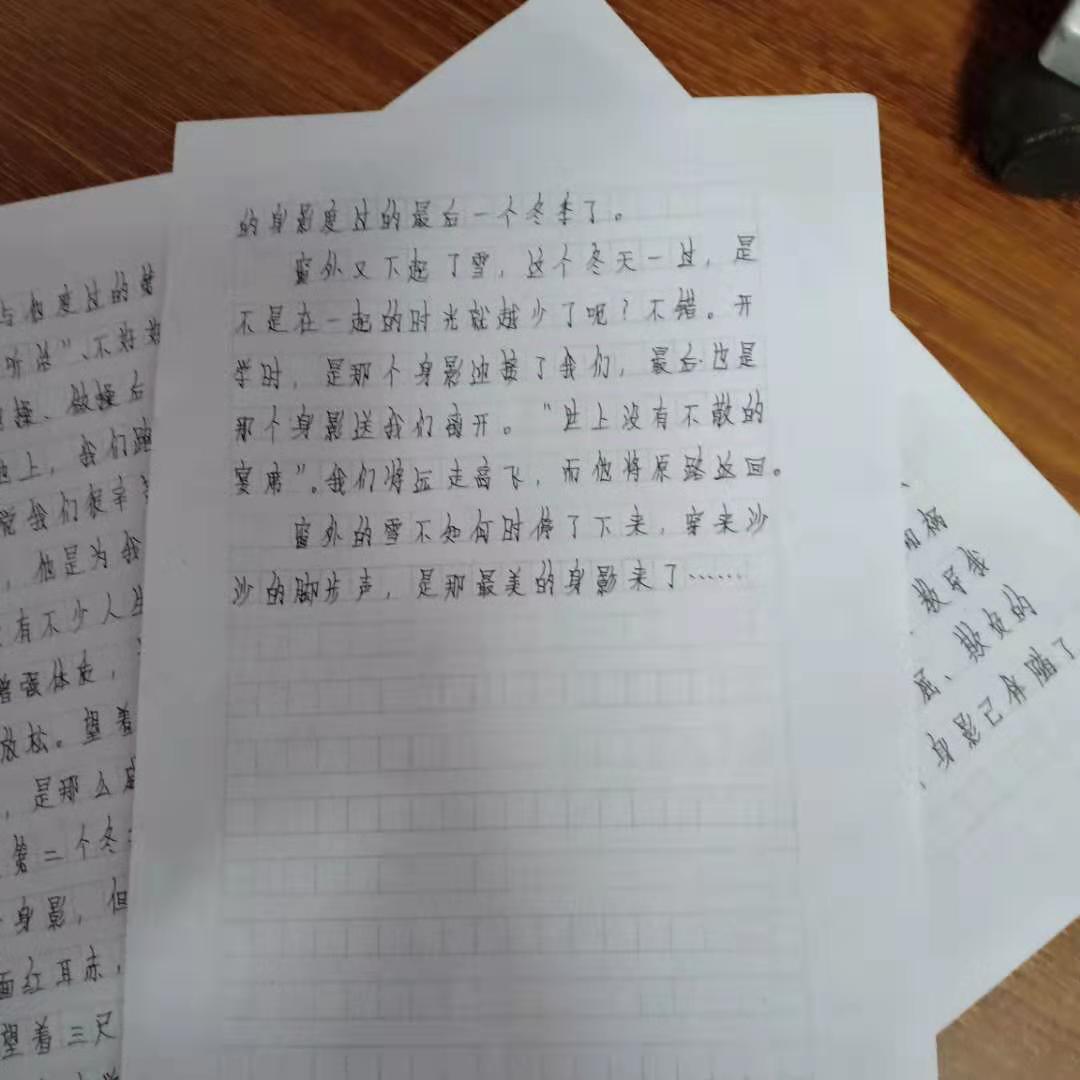 的身影度过的最后一个冬季了。
窗外又下起了雪，这个冬天一过，是
不是在一起的时光就越少了呢？不错。开
学时，是那个身影迎接了我们，最后也是
那个身影送我们离开。“世上没有不散的
宴席”。我们将远走高飞，而他将原路返回。
窗外的雪不知何时停了下来，穿来沙
沙的脚步声，是那最美的身影来了……
与他度过的第
听话”、不好好
操、做操后
上，我们跑
我们很辛
，他是为我
有不少人生
增强体质，
放松。望着
，是那么
第二个冬
身影，但
面红耳赤，
望着三尺
教导我
屈、欺负的
身影已伴随了